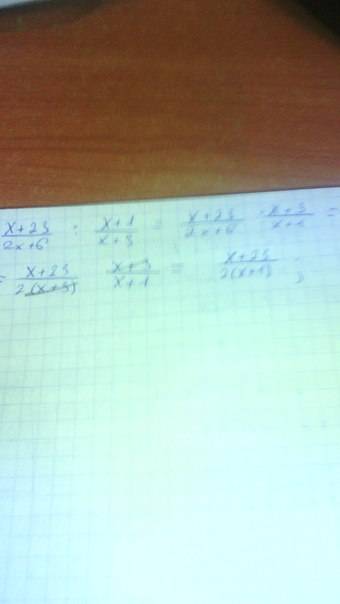 x+23/2x+6 : x+1/x+3 = x+23/2x+6 · x+3/x+1 =
= x+23/2(x+3) x+3/x+1 = x+23/2(x+1) ;